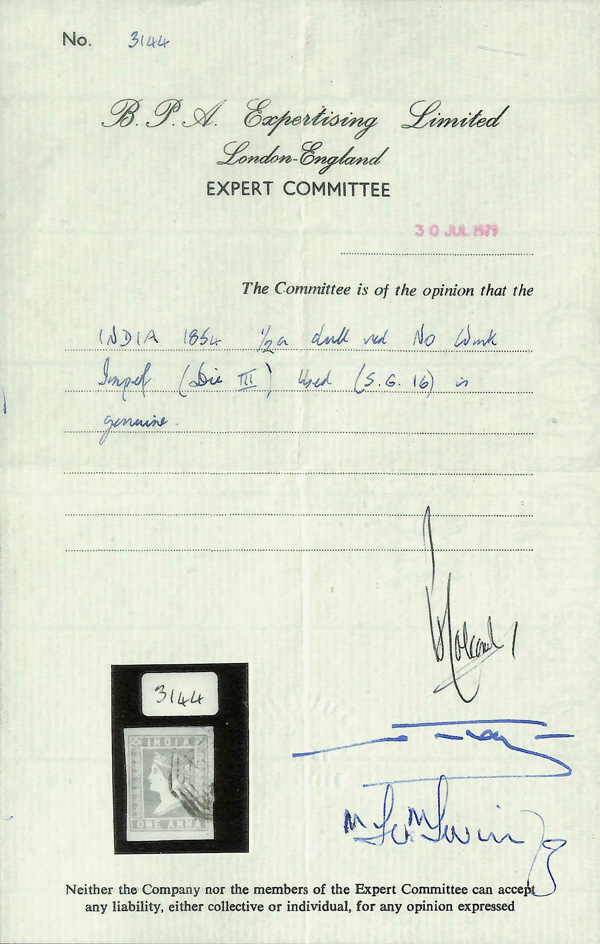 No. 3144
B. P. A. Expertising Limited
London-England
EXPERT COMMITTEE
30 JUL 1979
The Committee is of the opinion that the
INDIA 1854 ½a dull red No Wmk
Imperf (Die III) Used (S.G. 16) is
genuine.
3144
INDIA
ONE ANNA
Neither the Company nor the members of the Expert Committee can accept
any liability, either collective or individual, for any opinion expressed